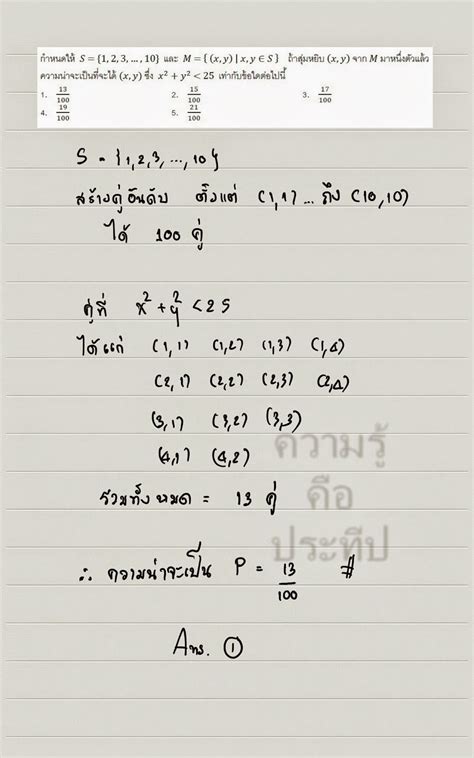 กำหนดให้ S = {1, 2, 3, ..., 10} และ M = { (x, y) | x, y ∈ S } ถ้าสุ่มหยิบ (x, y) จาก M มาหนึ่งตัวแล้ว
ความน่าจะเป็นที่จะได้ (x, y) ซึ่ง x² + y² < 25 เท่ากับข้อใดต่อไปนี้
1. 13/100 2. 15/100 3. 17/100
4. 19/100 5. 21/100
S = {1,2,3,...,10}
สร้างคู่อันดับ ตั้งแต่ (1,1) ... ถึง (10,10)
ได้ 100 คู่
คู่ที่ x² + y² < 25
ได้แก่ (1,1) (1,2) (1,3) (1,4)
(2,1) (2,2) (2,3) (2,4)
(3,1) (3,2) (3,3)
(4,1) (4,2)
รวมทั้งหมด = 13 คู่
∴ ความน่าจะเป็น P = 13/100 #
Ans. ①
ความรู้
คือ
ประทีป